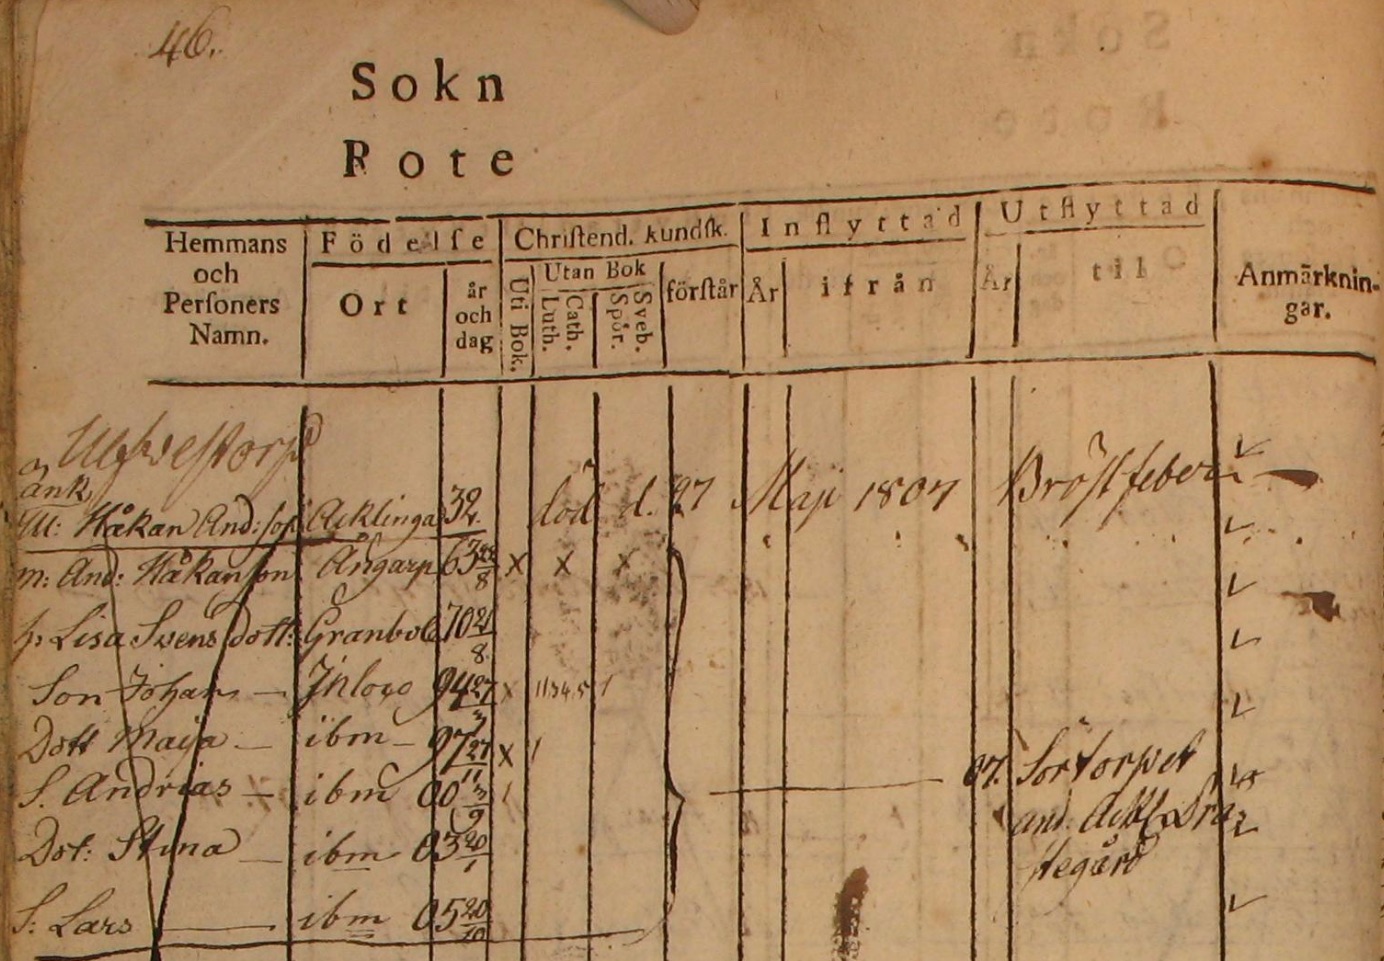 46.
Sokn
Rote
Hemmans och Personers Namn. Födelse Ort år och dag Christend. kundsk. Uti Bok. Utan Bok Luth. Cath. Sveb. Spör. förstår Inflyttad År ifrån Utflyttad År til Anmärkningar.
Ulfvestorp
ank
Håkan And:son Acklinga 32. död d. 27 Maji 1807 Bröstfeber
m: And: Håkanson Angarp 63 28/8 x x x
h: Lisa Svens dott: Granbol 70 21/8
Son Johan — Inloco 94 27/3 x
Dott Maija — ibm — 97 27/11 x 1
S. Andrias — ibm 00 3/9 07. Sörtorpet
Dot: Stina — ibm 03 20/1 and. Ackl. Prästegård
S: Lars — ibm 05 20/10